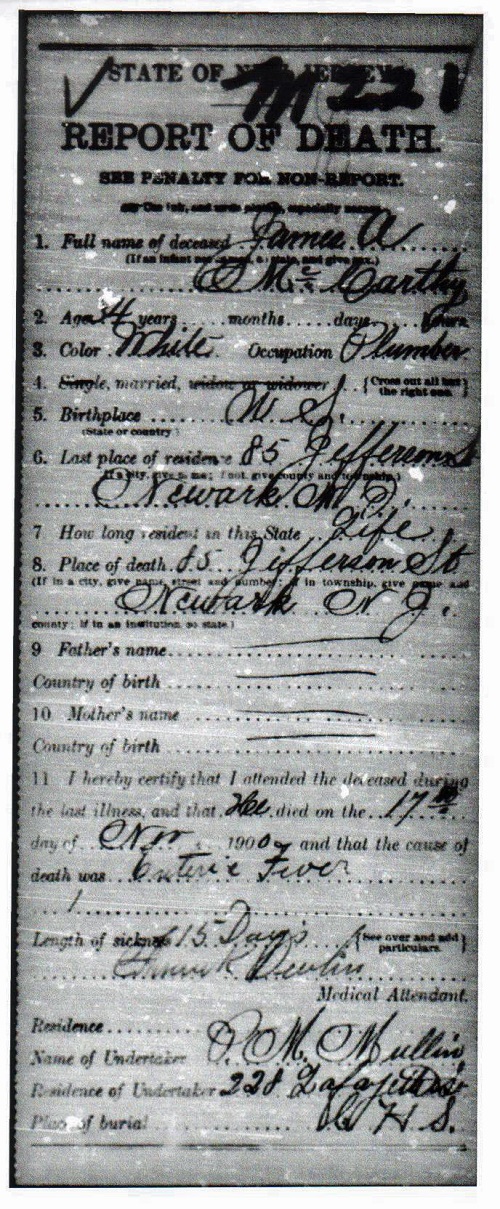 STATE OF NEW JERSEY
M 22
REPORT OF DEATH.
SEE PENALTY FOR NON-REPORT.
1. Full name of deceased James A
Mc Carthy
2. Age years months days hours
3. Color White Occupation Plumber
4. Single, married, widow or widower { Cross out all but the right one. }
5. Birthplace U. S.
(State or country)
6. Last place of residence 85 Jefferson St
Newark N. J.
7 How long resident in this State Life
8. Place of death 85 Jefferson St
(If in a city, give name, street and number; if in township, give name and
Newark N J.
county; if in an institution, so state.)
9 Father's name
Country of birth
10 Mother's name
Country of birth
11 I hereby certify that I attended the deceased during
the last illness, and that He died on the 17th
day of Nov 1900, and that the cause of
death was Enteric Fever
Length of sickness 15 Days { See over and add particulars. }
Frank Devlin
Medical Attendant.
Residence
Name of Undertaker P. M. Mullin
Residence of Undertaker 228 Lafayette St
Place of burial C H S.